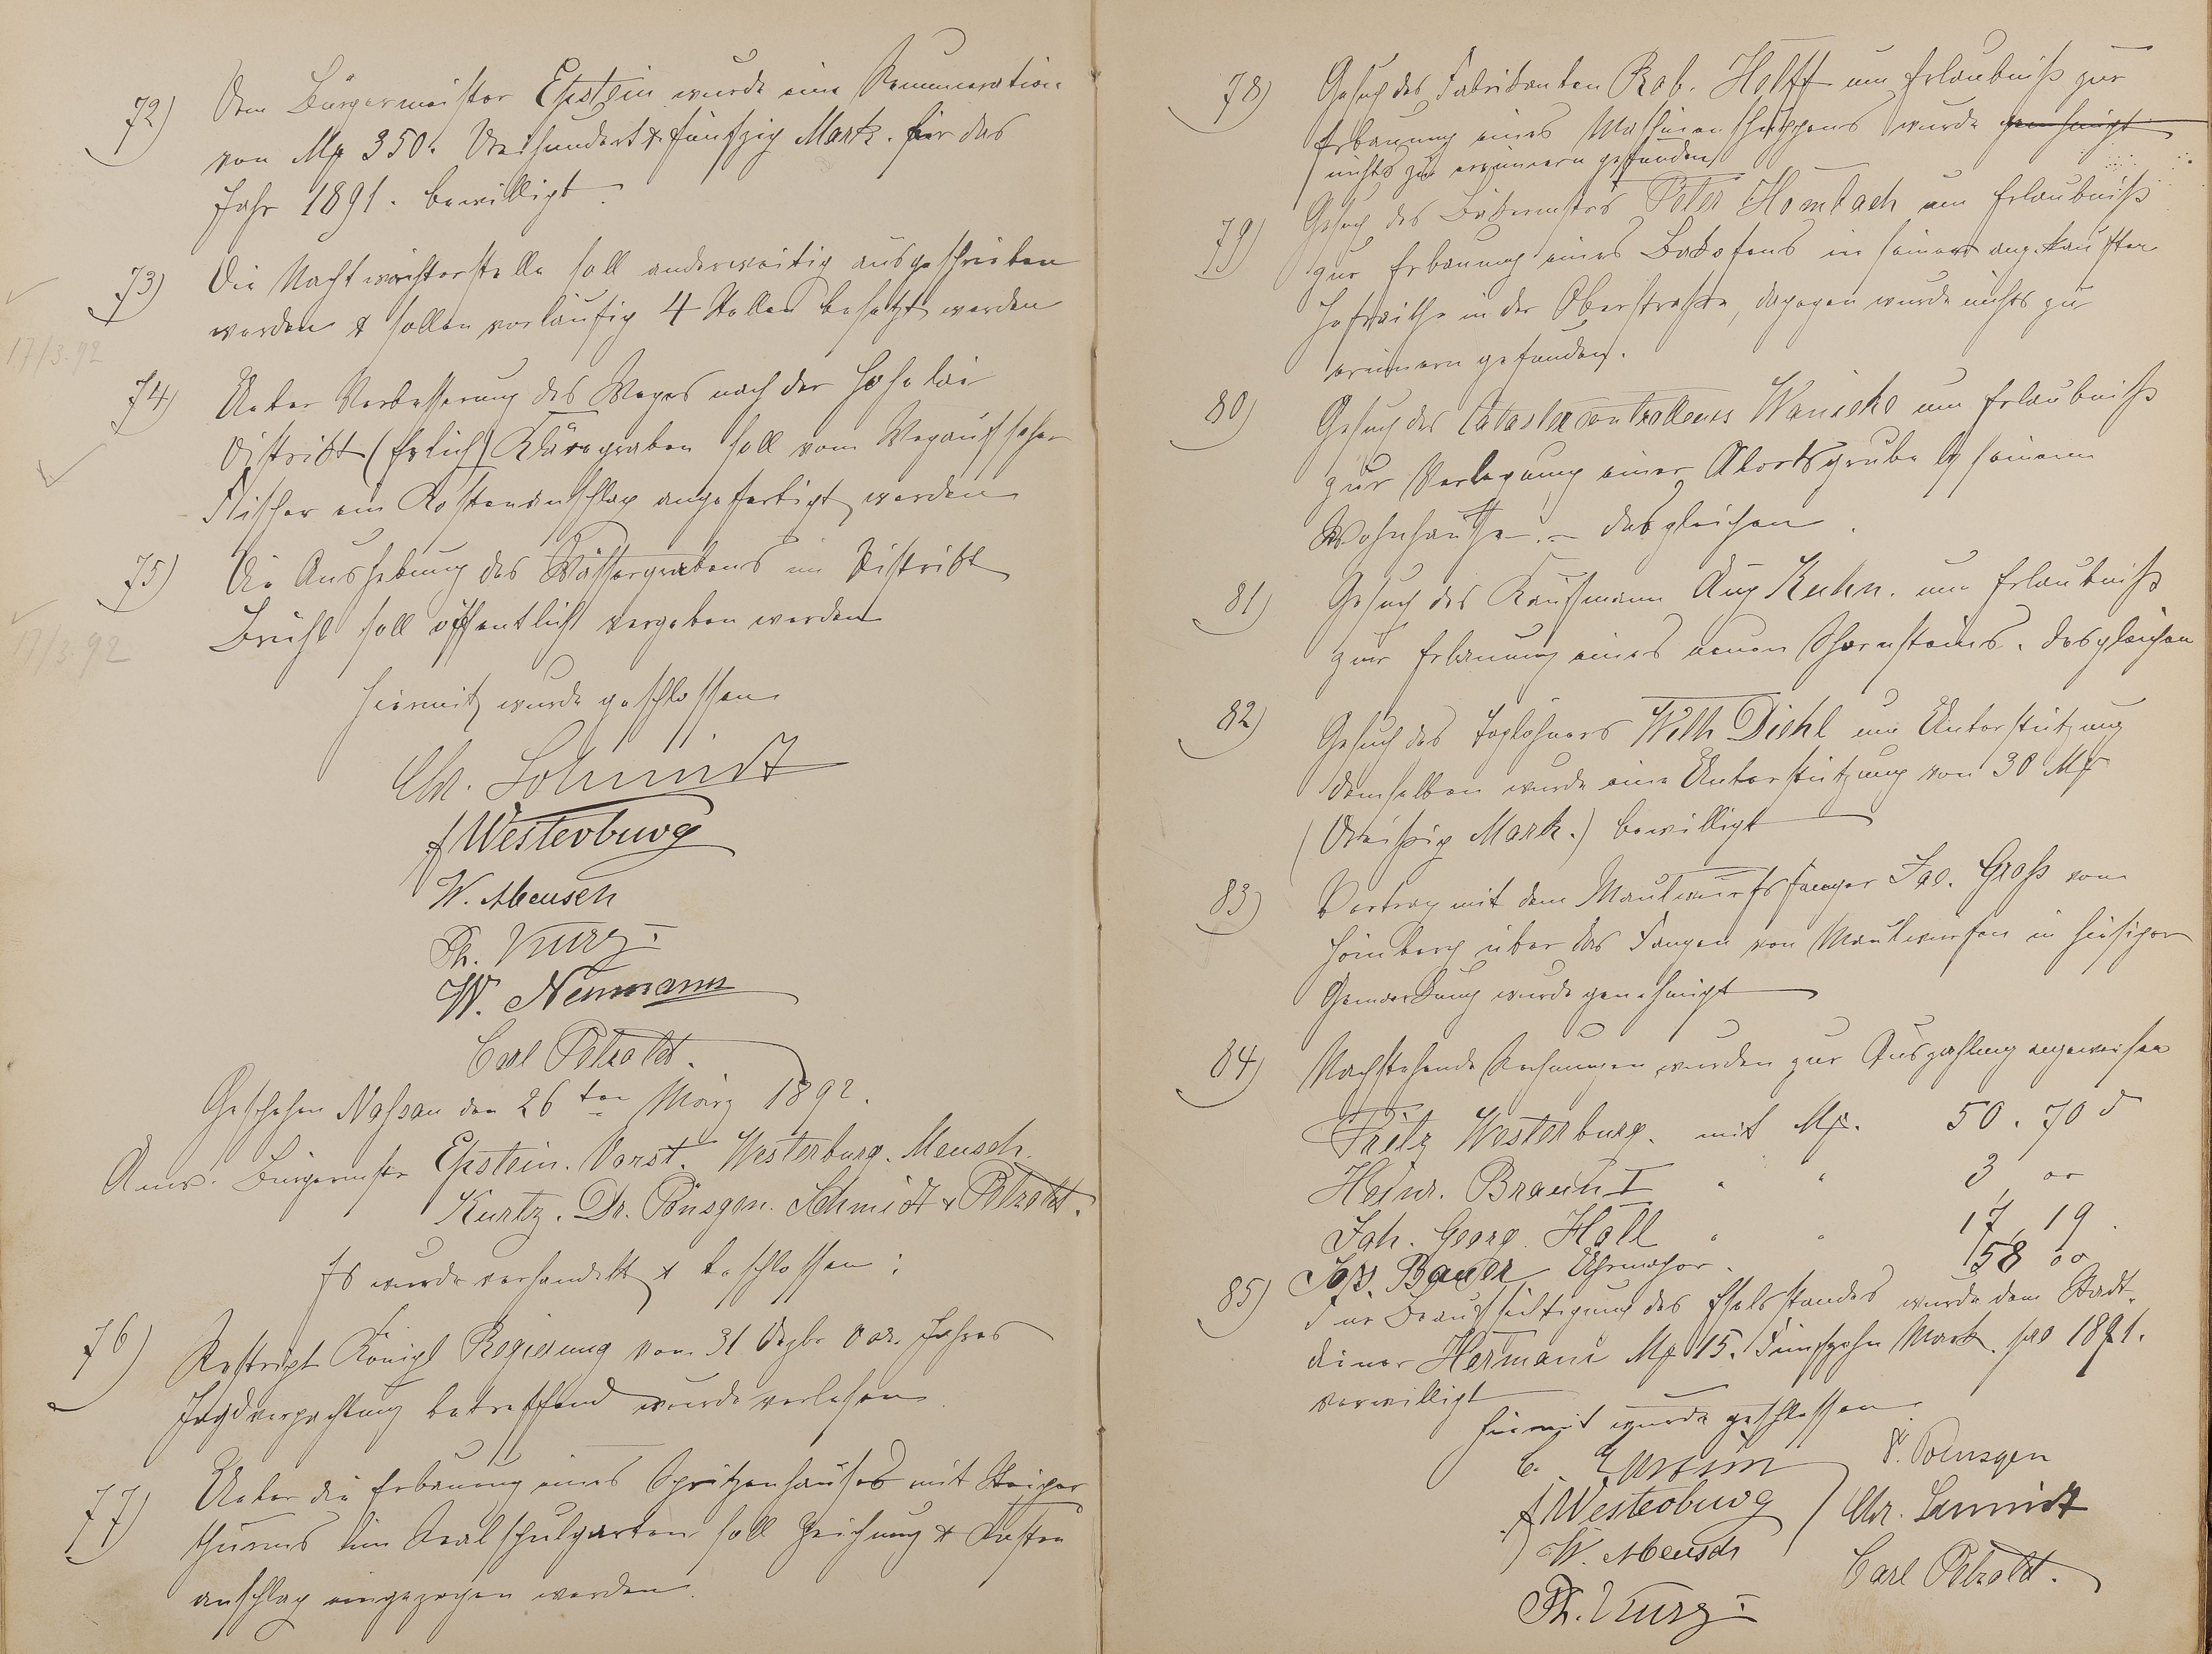 72) Dem Bürgermeister Epstein wurde eine Remuneration
von Mk 350. Dreihundert & fünfzig Mark. für das
Jahr 1891. bewilligt.
73) Die Nachtwächterstelle soll anderweitig ausgeschrieben
werden & sollen vorläufig 4 Stellen besetzt werden
17/3.92
74) Ueber Verbesserung des Weges nach der Hohelai
Distrikt (Erlich) graben soll vom Wegaufseher
Fischer ein Kostenanschlag angefertigt werden
75) Die Aushebung des Wassergrabens im Distrikt
Brühl soll öffentlich vergeben werden
17/3.92
Hiermit wurde geschlossen
Chr. Schmidt
f Westerburg
W. Mensch
Ph. Kurz
W. Neumann
Carl Petzoldt.
Geschehen Nassau den 26ten März 1892.
Anw. Bürgermstr Epstein. Vorst. Westerburg. Mensch.
Kurtz. Dr. Pönsgen. Schmidt & Petzoldt.
Es wurde verhandelt & beschlossen:
76) Reskript Königl Regierung vom 31 Dezbr vor. Jahres
Jagdverpachtung betreffend wurde verlesen
77) Ueber die Erbauung eines Spritzenhauses mit Steiger
thurms im Realschulgarten soll Zeichnung & Kosten
anschlag eingezogen werden.
78) Gesuch des Fabrikanten Rob. Holff um Erlaubniß zur
Erbauung eines Maschinenschuppens wurde genehmigt
nichts zu erinnern gefunden
79) Gesuch des Bäkermstrs Peter Hombach um Erlaubniß
zur Erbauung eines Bakofens in seiner angekauften
Hofraithe in der Oberstraße, dagegen wurde nichts zu
erinnern gefunden.
80) Gesuch des Catastercontrolleurs Wanieke um Erlaubniß
zur Verlegung einer Abortsgrube by seinem
Wohnhause. – desgleichen.
81) Gesuch des Kaufmann Aug Kuhn. um Erlaubniß
zur Erbauung eines neuen Schornsteins. desgleichen
82) Gesuch des Taglöhners Wilh Diehl um Unterstützung
demselben wurde eine Unterstützung von 30 Mk
(Dreißig Mark.) bewilligt
83) Vertrag mit dem Maulwurfsfänger Jac. Groß von
Hömberg über das Fangen von Maulwürfen in hiesiger
Gemarkung wurde genehmigt
84) Nachstehende Rechnungen wurden zur Auszahlung angewiesen
Fritz Westerburg. mit Mk. 50.70 ₰
Heinr. Braun I " " 3 00
Joh. Georg Holl " " 17,19.
Jos. Bauer Uhrmacher. 58 00
85) Für Beaufsichtigung des Eselsstandes wurde dem Stadt-
diener Hermani Mk 15. Fünfzehn Mark. pro 1891.
verwilligt
Hiermit wurde geschlossen
C. Epstein P. Poensgen
f Westerburg Chr. Schmidt
W. Mensch
Carl Petzoldt.
Ph. Kurz